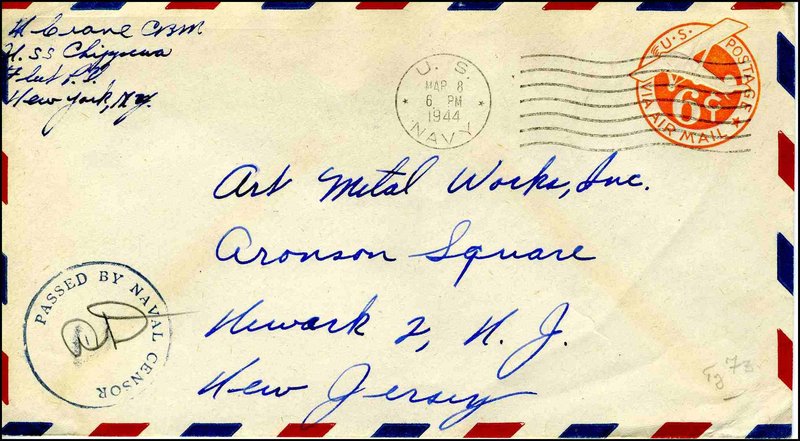 H Crane CBM
U.SS Chippewa
Fleet P.O,
New York, N.Y.
U. S.
MAR 8
6 PM
1944
NAVY
U.S. POSTAGE
6¢
VIA AIR MAIL
Art Metal Works, Inc.
Aronson Square
Newark 2, N. J.
New Jersey
PASSED BY NAVAL CENSOR
73